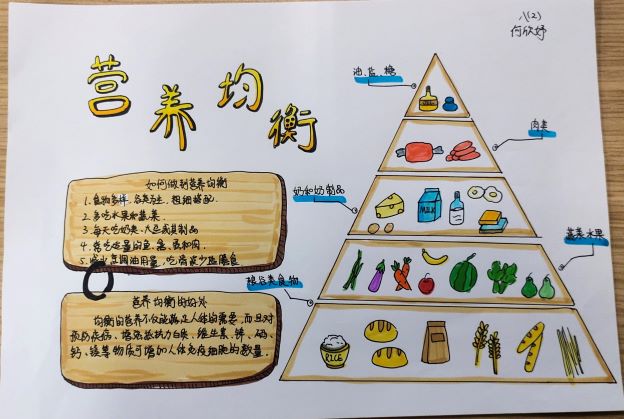 八(2)
何欣妤
营养均衡
油、盐、糖
肉类
奶和奶制品
蔬菜水果
粮谷类食物
MILK
RICE
如何做到营养均衡
1.食物多样,谷类为主,粗细搭配。
2.多吃水果和蔬果。
3.每天吃奶类、大豆或其制品
4.常吃适量的鱼、禽、蛋和肉。
5.减少烹调油用量,吃清淡少盐膳食
营养均衡的好处
均衡的营养不仅能满足人体的需要,而且对
预防疾病、增强抵抗力
白质、维生素、锌、硒、
钙、镁等物质可增加人体免疫细胞的数量.